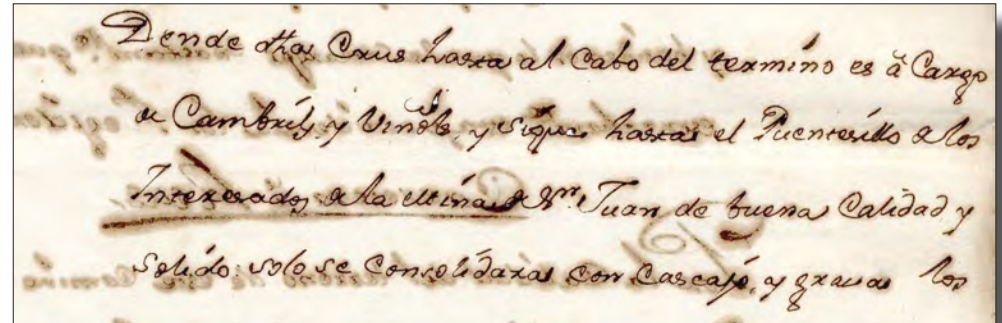 Dende dha Crus hasta al Cabo del termino es â Cargo
de Cambrils, y Viñols, y sigue hasta el Puentesillo de los
Interesados de la Mina de Sn. Juan de buena Calidad y
solido: solo se Consolidara con Cascajo, y grava los